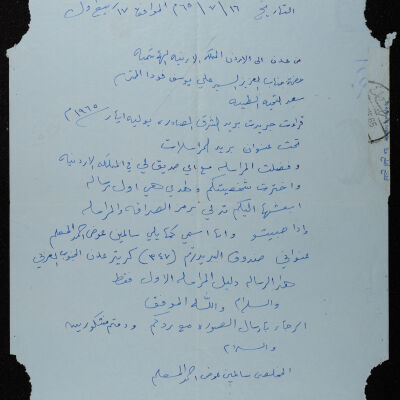 التاريخ ١٦ / ٧ / ٦٥م الموافق ١٧ ربيع اول
من عدن الى الاردن المملكه الاردنيه الهاشميه
حضرة جناب العزيز السيد علي يوسف المحترم
بعد التحيه الطيبه
قرأت جريدت بريد الشرق الصادره ١٩٦٥م
تحت عنوان بريد المراسلات
وفضلت المراسله مع اي صديق لي في المملكه الاردنيه
واخترت شخصيتكم وهذي هي اول رساله
ابعثها اليكم تدلي برمز الصداقه والمراسله
واذا حبيتو وانا اسمي كما يلي سالمين عوض احمد المسلم
عنواني صندوق البريد رقم (٣٤٧) كريتر عدن الجنوب العربي
هذا الرساله دليل المراسله الاول فقط
والسلام والله الموفق
الرجاء بارسال الصوره مع ردكم ودمتم مشكورين
والسلام
المخلص سالمين عوض احمد المسلم